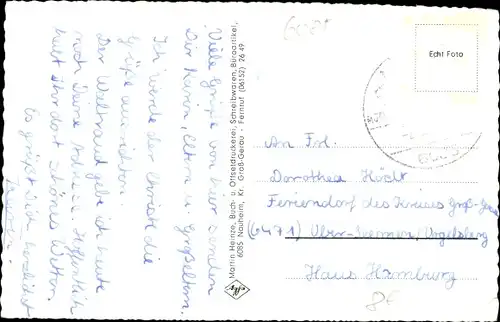 Viele Grüße von hier senden
Dir Karin, Eltern u. Großeltern.
Ich werde der Christl die
Grüße ausrichten.
Der Waltraud gebe ich heute
noch Deine Adresse. Hoffentlich
habt Ihr dort schönes Wetter.
Es grüßt Dich herzlichst
Martin Heinze, Buch- u. Offsetdruckerei, Schreibwaren, Büroartikel,
6085 Nauheim, Kr. Groß-Gerau - Fernruf (06152) 26 49
Echt Foto
An Frl.
Dorothea Höcht
Feriendorf des Kreises Groß-Gerau
(6471) Ober-Seemen, Vogelsberg
Haus Hamburg